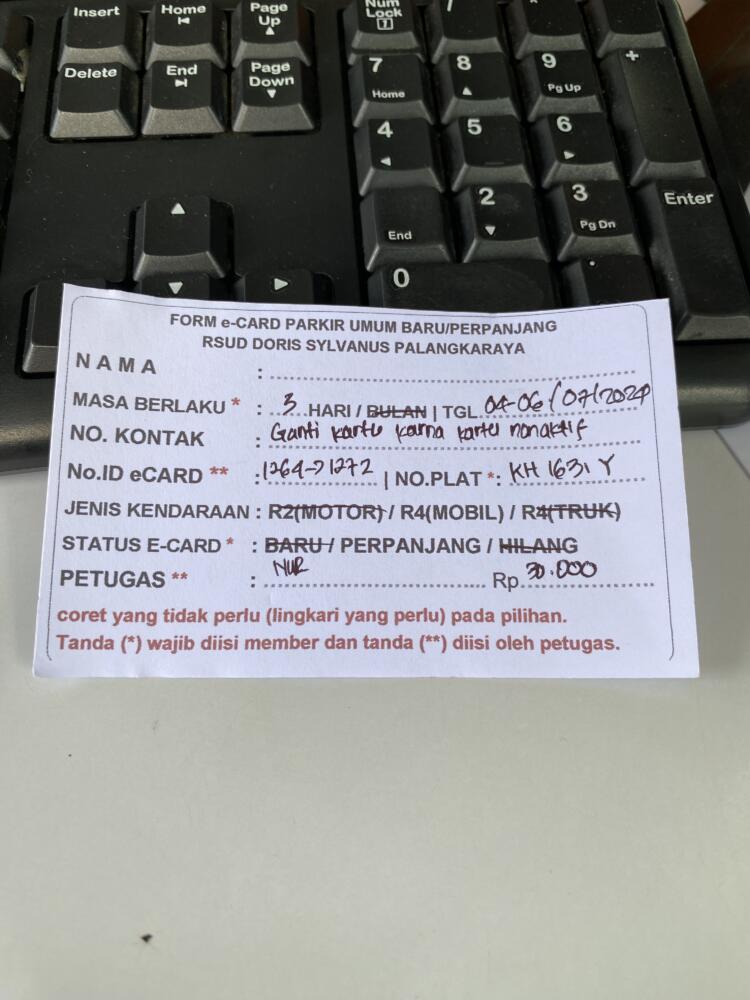 Insert Home Page Up Num Lock /
Delete End Page Down 7 Home 8 9 Pg Up +
4 5 6
End 2 3 Pg Dn Enter
0 .
FORM e-CARD PARKIR UMUM BARU/PERPANJANG
RSUD DORIS SYLVANUS PALANGKARAYA
N A M A :
MASA BERLAKU * : 3 HARI / BULAN | TGL 04-06/07/2024
NO. KONTAK : Ganti kartu karna kartu nonaktif
No.ID eCARD ** : 1264-71272 | NO.PLAT *: KH 1631 Y
JENIS KENDARAAN : R2(MOTOR) / R4(MOBIL) / R4(TRUK)
STATUS E-CARD * : BARU / PERPANJANG / HILANG
PETUGAS ** : NUR Rp 30.000
coret yang tidak perlu (lingkari yang perlu) pada pilihan.
Tanda (*) wajib diisi member dan tanda (**) diisi oleh petugas.